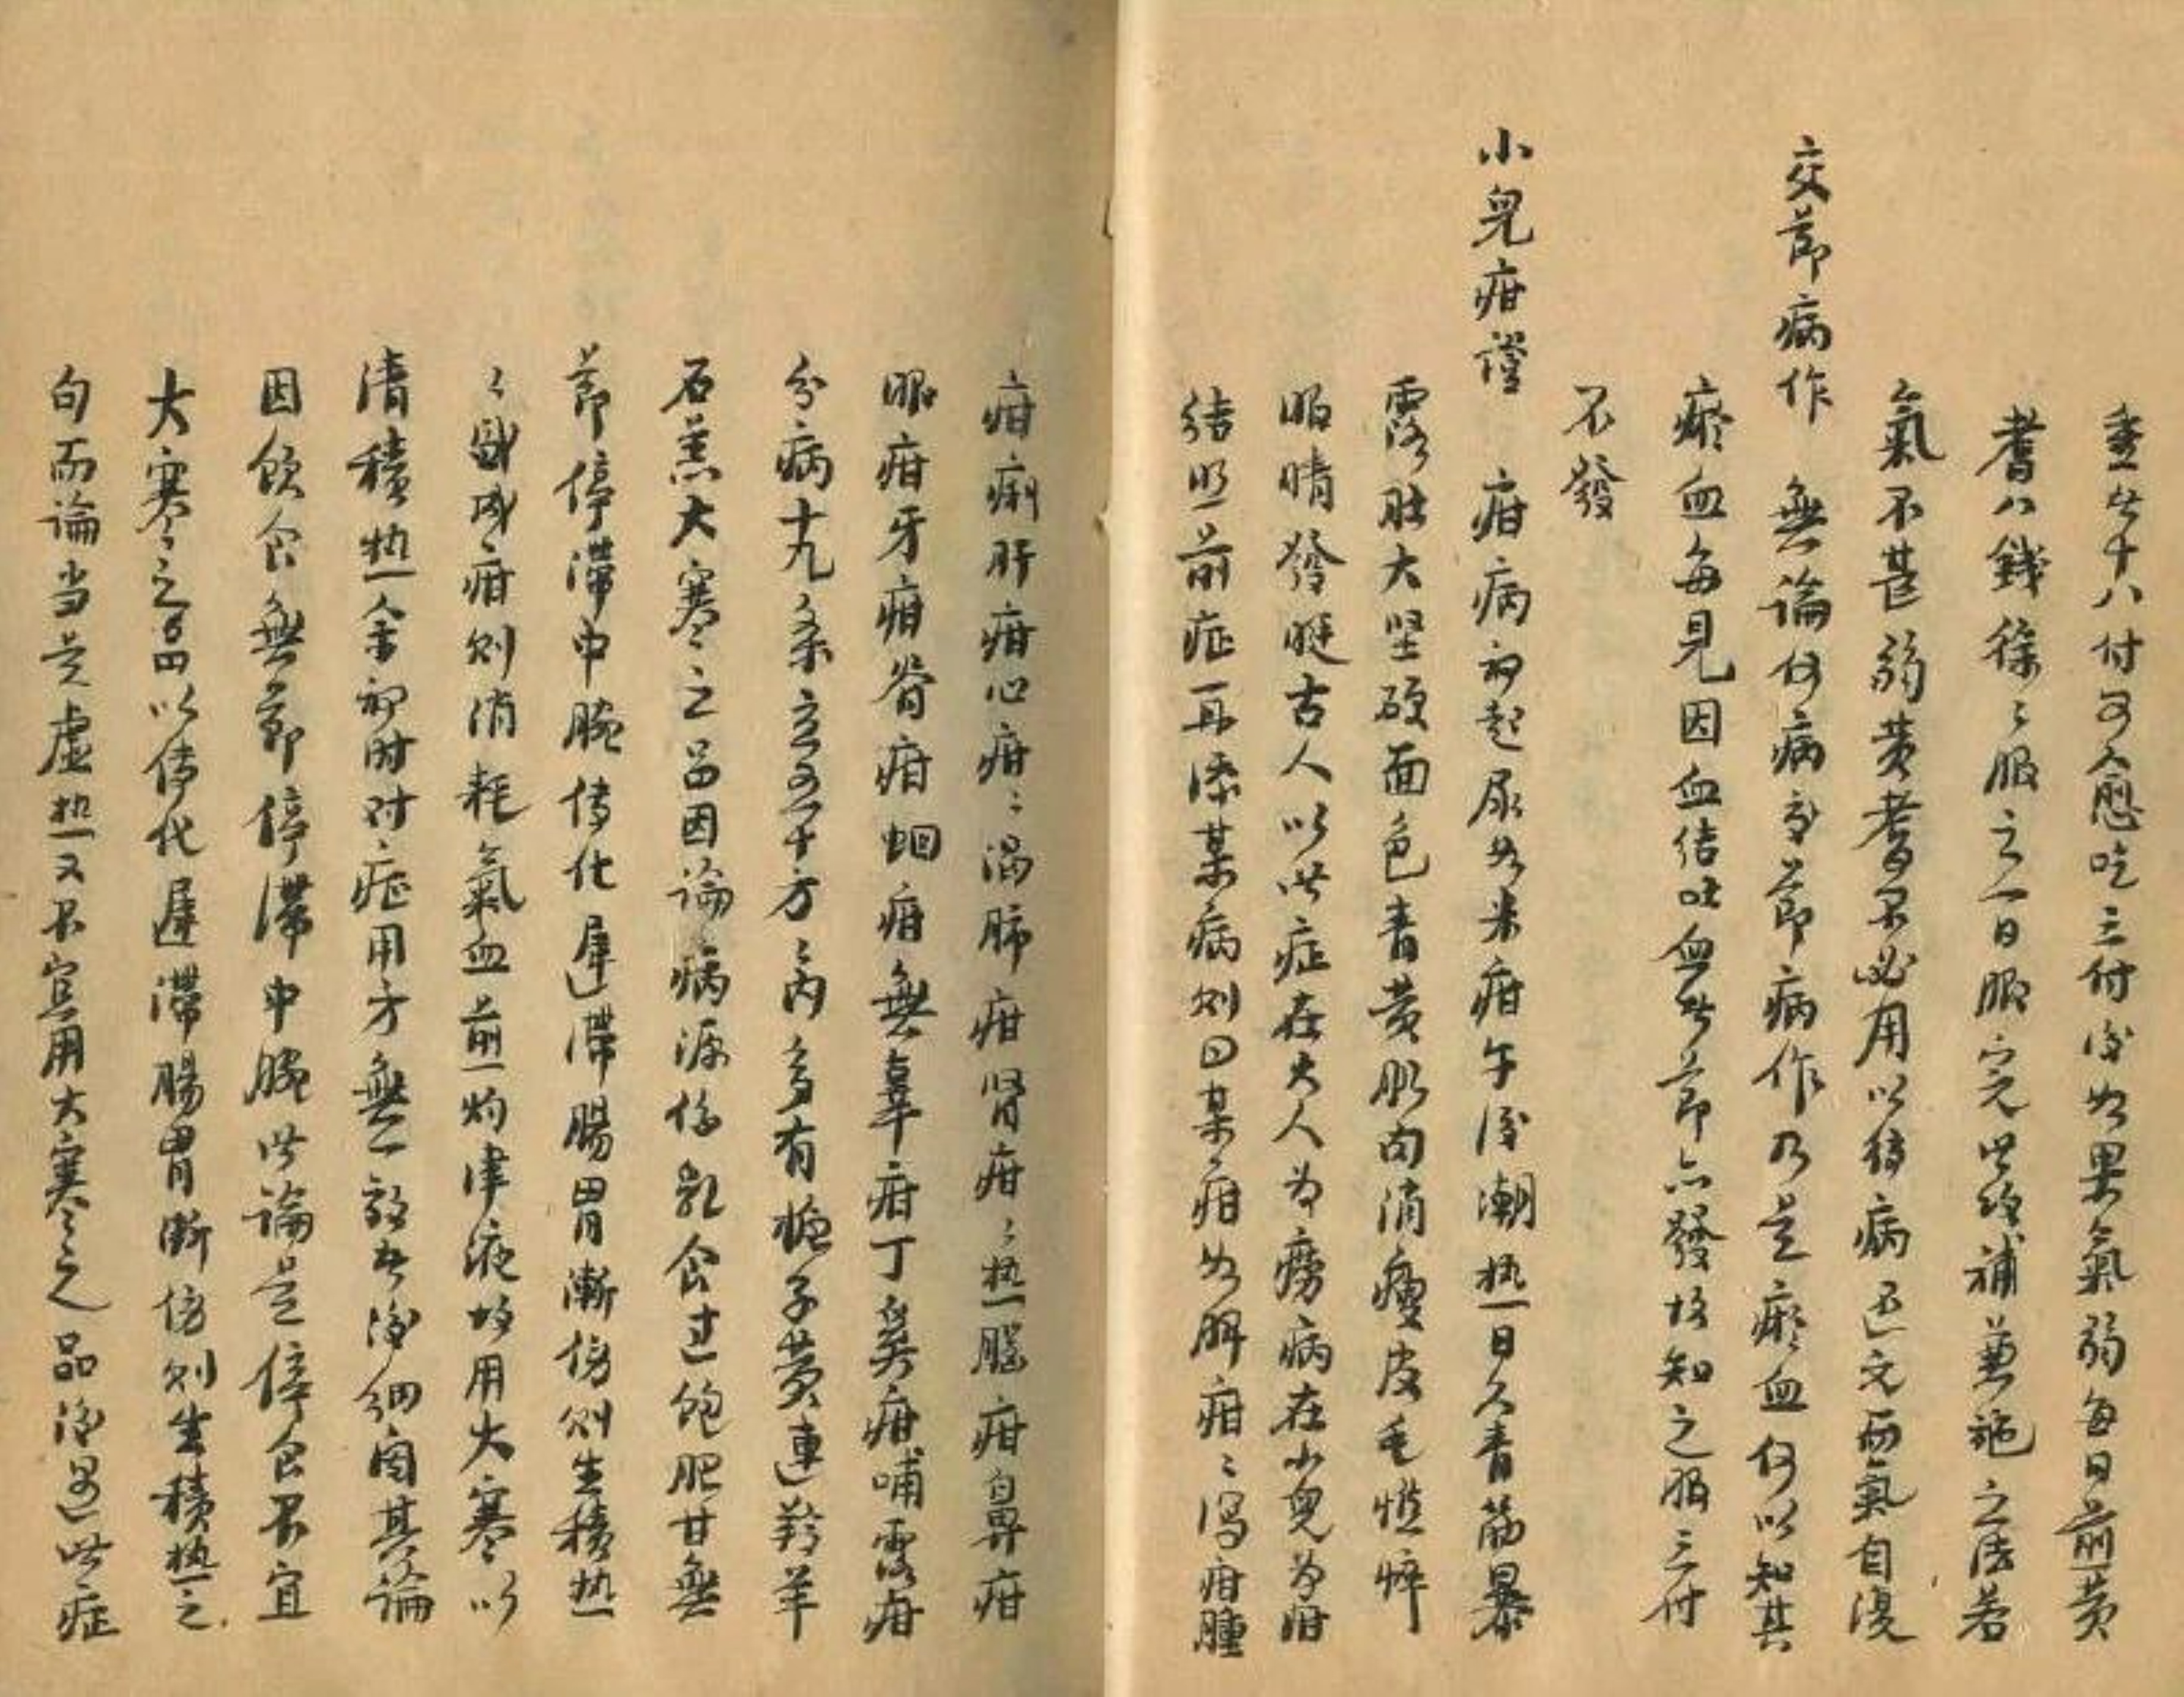 重者十八付可全愈吃三付後如果氣弱每日煎黄
耆八錢徐〻服之一日服完此攻補兼施之法若
氣不甚弱黄耆不必用以待病退元而氣自復
交莭病作　無論何病交莭病作乃是瘀血何以知其
瘀血每見因血結吐血者莭亦發故知之服三付
不發
小兒疳證　疳病初起尿如米疳午後潮热日久青筋暴
露肚大坚硬面色青黄肌肉消瘦皮毛憔悴
眼睛發𥆧古人以此症在大人为癆病在小兒为疳
結照前症再添某病则曰某疳如脾疳〻瀉疳腫
疳痢肝疳心疳〻渴肺疳肾疳〻热腦疳鼻疳
眼疳牙疳脊疳蛔疳無辜疳丁奚疳哺露疳
分病十九条立五十方〻内多有梔子黄連羚羊
石羔大寒之品因論病源係乳食过饱肥甘無
莭停滯中脘传化遲滯腸胃漸傷则生積热
〻盛成疳则消耗氣血煎灼津液故用大寒以
清積热余初时对症用方無一效者後细閱其論
因飲食無莭停滯中脘此論是停食不宜
大寒之品以传化遲滯腸胃漸傷则生積热之
句而論当是虚热又不宜用大寒之品後遇此症